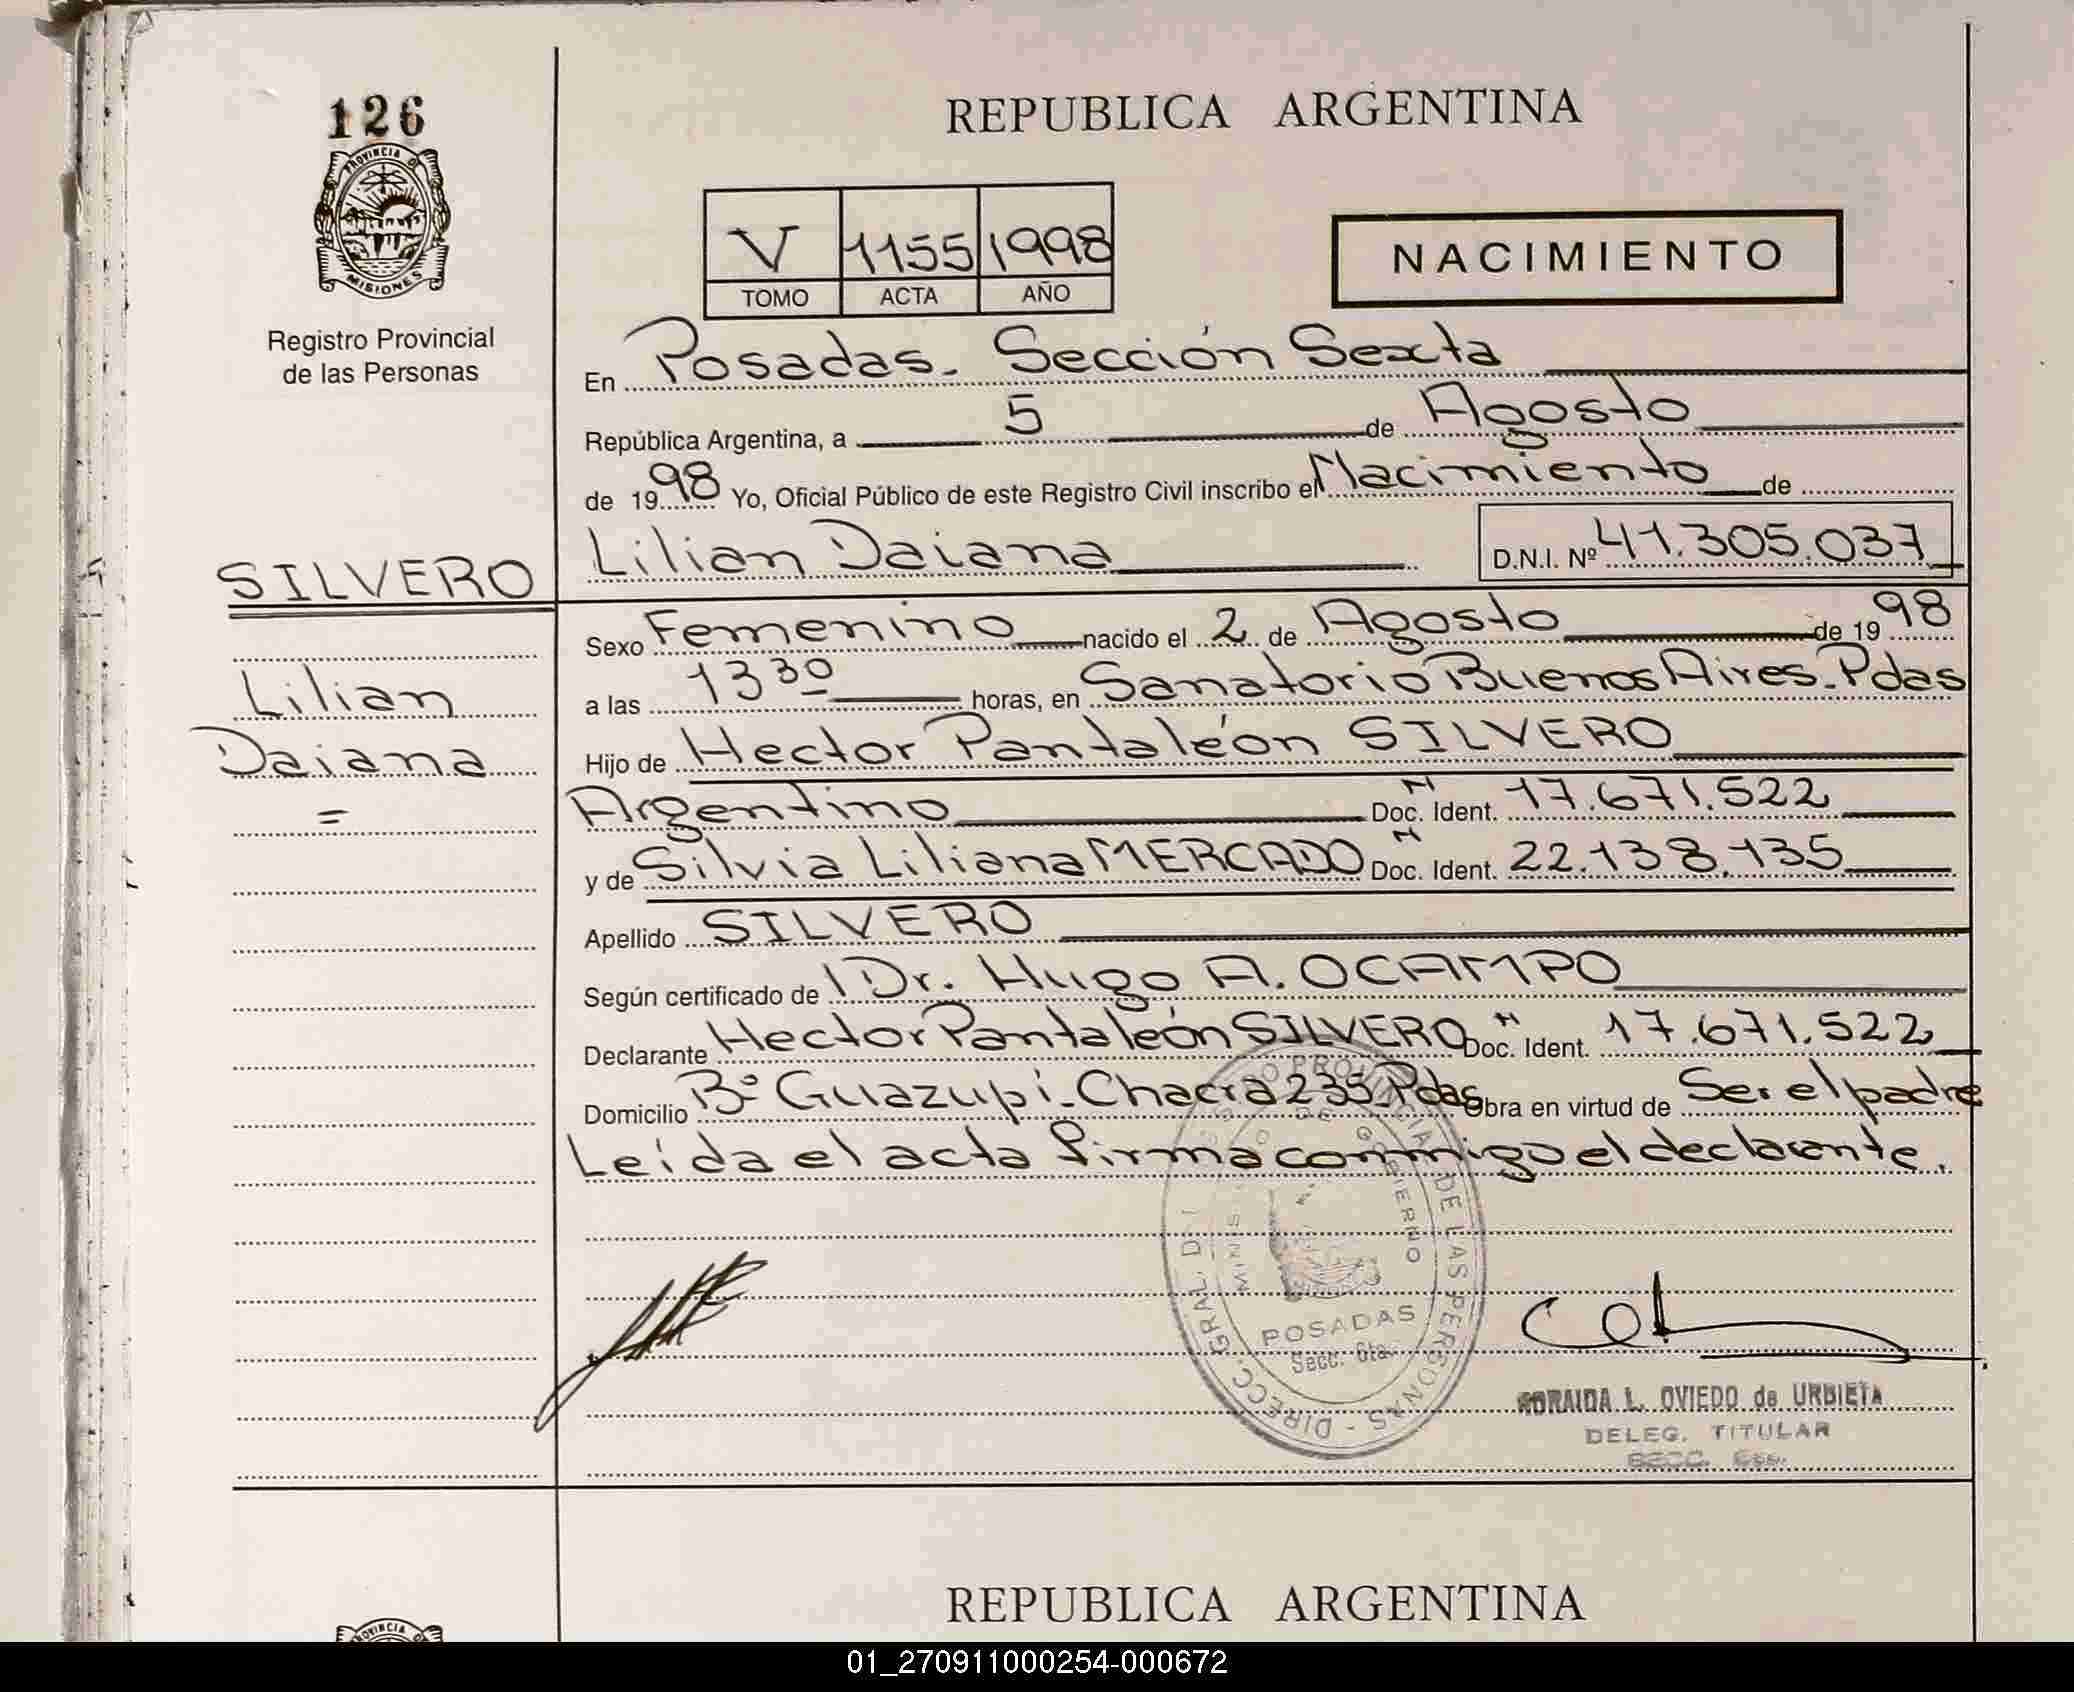 126
PROVINCIA DE
MISIONES
Registro Provincial
de las Personas
SILVERO
Lilian
Daiana
=
REPUBLICA ARGENTINA
V 1155 1998
TOMO ACTA AÑO
NACIMIENTO
En Posadas. Sección Sexta
República Argentina, a 5 de Agosto
de 1998 Yo, Oficial Público de este Registro Civil inscribo el Nacimiento de
Lilian Daiana D.N.I. Nº 41.305.037
Sexo Femenino nacido el 2 de Agosto de 1998
a las 13 30 horas, en Sanatorio Buenos Aires. Pdas
Hijo de Hector Pantaleón SILVERO
Argentino Doc. Ident. N 17.671.522
y de Silvia Liliana MERCADO Doc. Ident. N 22.138.135
Apellido SILVERO
Según certificado de Dr. Hugo A. OCAMPO
Declarante Hector Pantaleón SILVERO Doc. Ident. N 17.671.522
Domicilio Bº Guazupí. Chacra 235. Pdas Obra en virtud de Ser el padre
Leída el acta firma conmigo el declarante.
PROVINCIAL DE LAS PERSONAS - DIRECC. GRAL.
DE GOBIERNO
POSADAS
Secc. 6ta.
L. OVIEDO de URBIETA
DELEG. TITULAR
SECC.
REPUBLICA ARGENTINA
PROVINCIA
01_270911000254-000672